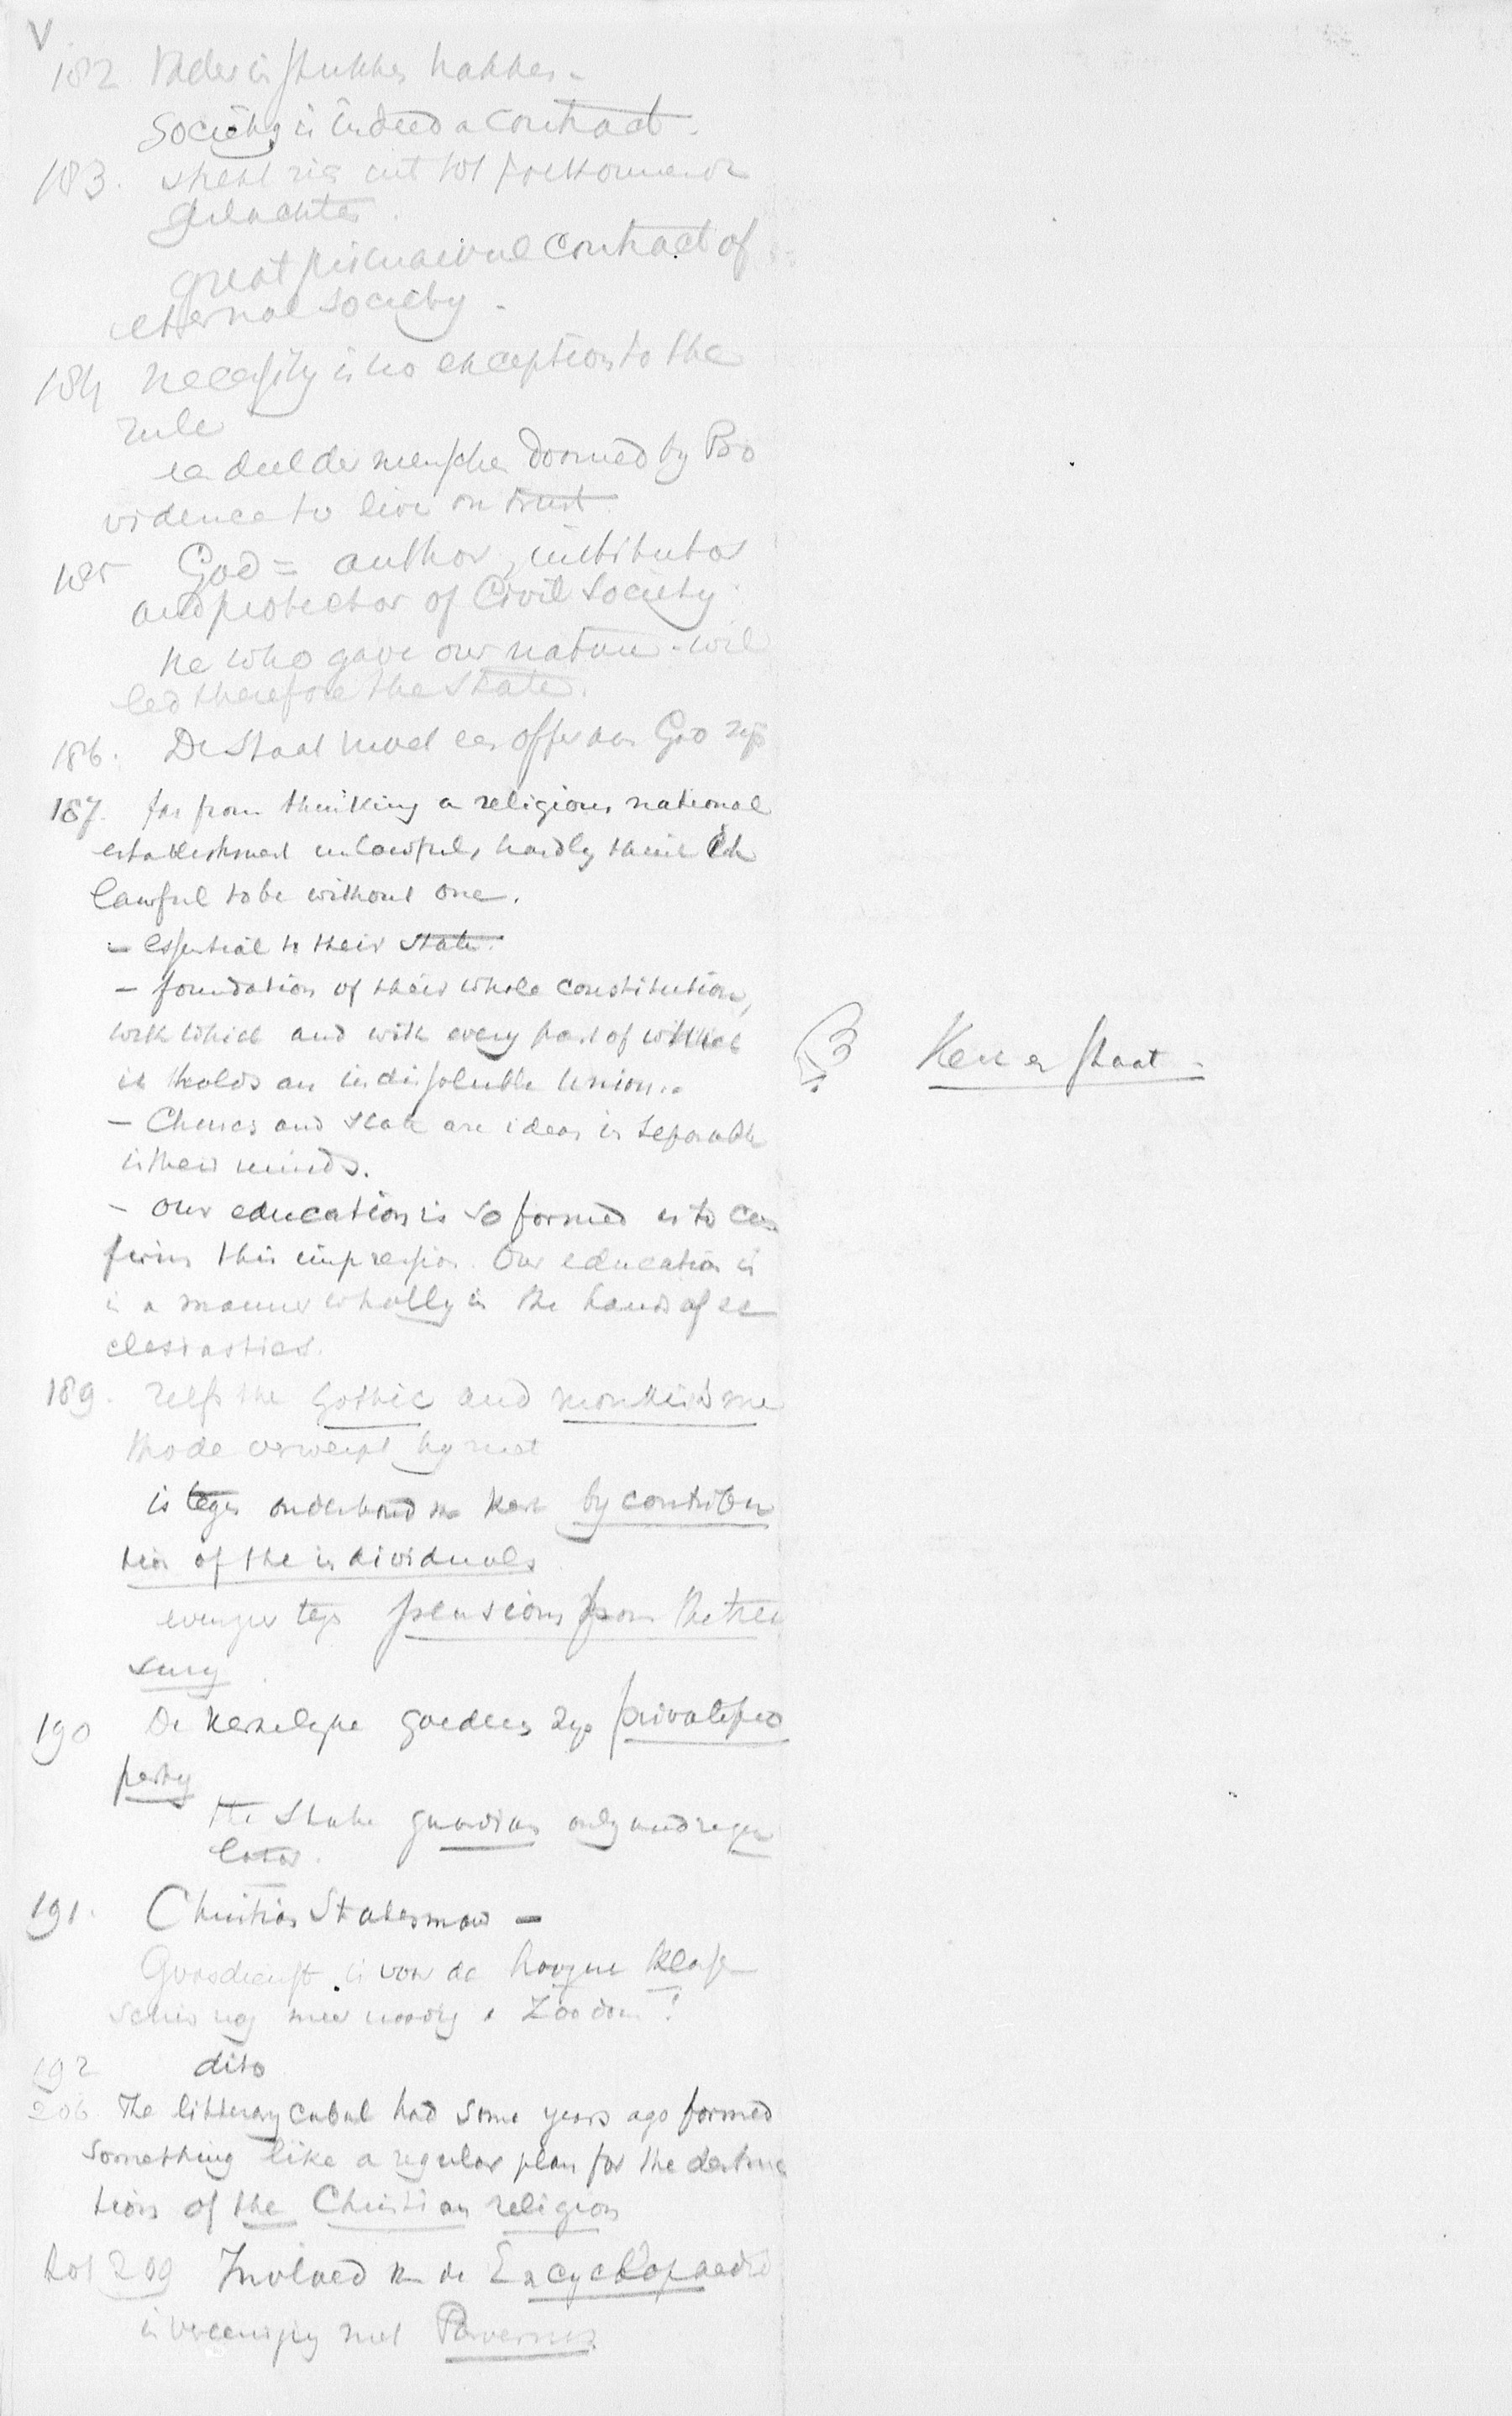 V
182 Vader in stukken hakken -
Society is indeed a contract.
183. strekt zig uit tot toekomende
geslachten.
great primaeval contract of
eternal society -
184 necessity is no exception to the
rule
een deel der menschen doomed by Pro
vidence to live on trust
185 God = author, institutor
and protector of Civil Society.
he who gave our nature - wil
led therefore the State.
186. De Staat moet een offer aan God zijn
187. far from thinking a religious national
establishment unlawful, hardly think it
lawful to be without one.
- essential to their state.
- foundation of their whole constitution,
with which and with every part of which
it holds an indissoluble union..
- Church and State are ideas inseparable
in their minds.
- our education is so formed as to con
firm this impression. Our education is
in a manner wholly in the hands of ec
clesiastics.
189. zelfs the Gothic and monkish me
thode verwerpt hij niet
is tegen onderhoud van Kerk by contribu
tion of the individuals
evenzeer tegen pensions from the trea
sury.
190 De kerkelijke goederen zijn private pro
perty
the State guardian only and regu
lator.
191. Christian Statesman -
Godsdienst is voor de hoogere klasse
schier nog meer noodig. Zoo dom!
192 dito
206 The litterary cabal had some years ago formed
something like a regular plan for the destruc
tion of the Christian religion
tot 209 Invloed van de Encyclopaedie
in vereeniging met
Kerk en staat -